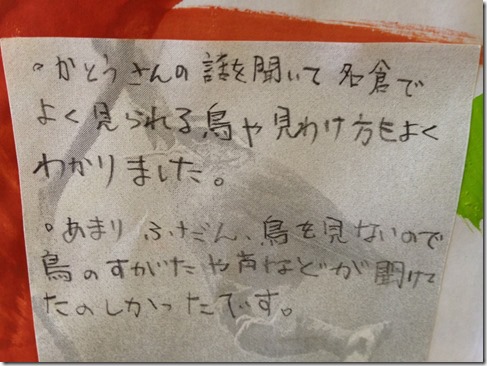 。かとうさんの話を聞いて名倉で
よく見られる鳥や見わけ方をよく
わかりました。
。あまりふだん、鳥を見ないので
鳥のすがたや声などが聞けて
たのしかったです。